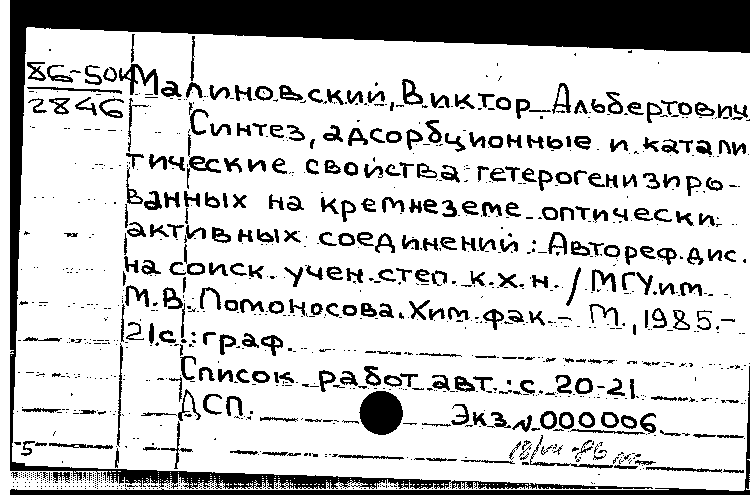 86-50к Малиновский, Виктор Альбертович
2846
Синтез, адсорбционные и катали
тические свойства гетерогенизиро-
ванных на кремнеземе оптически
активных соединений : Автореф. дис.
на соиск. учен. степ. к.х.н. / МГУ им.
М.В. Ломоносова. Хим. фак. – М., 1985. –
21с. : граф.
Список работ авт. : с. 20-21
ДСП. Экз № 000006
18/VII-86
5